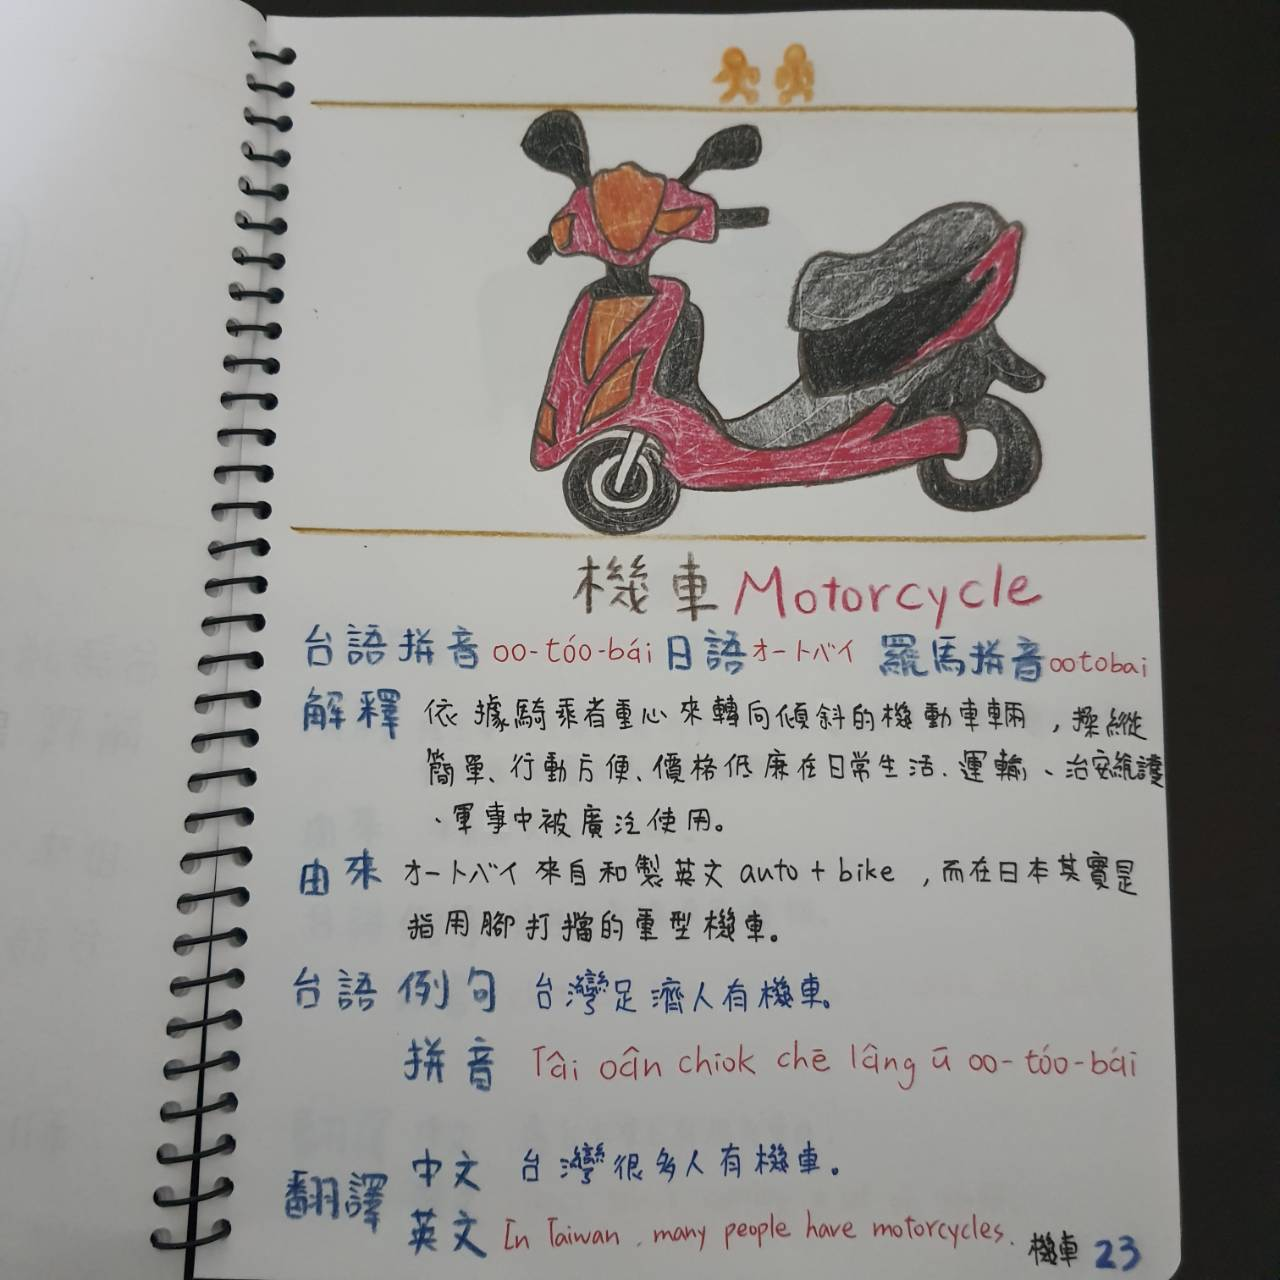 機車 Motorcycle
台語拼音 oo-tóo-bái 日語 オートバイ 羅馬拼音 ootobai
解釋 依據騎乘者重心來轉向傾斜的機動車輛，操縱
簡單、行動方便、價格低廉在日常生活、運輸、治安維護
、軍事中被廣泛使用。
由來 オートバイ 來自和製英文 auto + bike ，而在日本其實是
指用腳打擋的重型機車。
台語例句 台灣足濟人有機車。
拼音 Tâi oân chiok chē lâng ū oo-tóo-bái
翻譯 中文 台灣很多人有機車。
英文 In Taiwan , many people have motorcycles.
機車 23